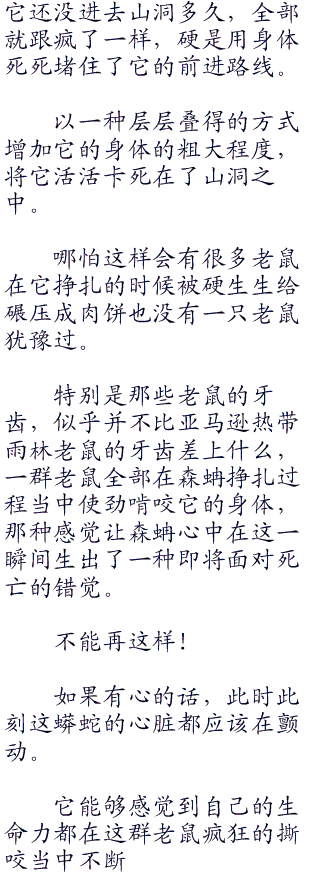 它还没进去山洞多久，全部
就跟疯了一样，硬是用身体
死死堵住了它的前进路线。
以一种层层叠得的方式
增加它的身体的粗大程度，
将它活活卡死在了山洞之
中。
哪怕这样会有很多老鼠
在它挣扎的时候被硬生生给
碾压成肉饼也没有一只老鼠
犹豫过。
特别是那些老鼠的牙
齿，似乎并不比亚马逊热带
雨林老鼠的牙齿差上什么，
一群老鼠全部在森蚺挣扎过
程当中使劲啃咬它的身体，
那种感觉让森蚺心中在这一
瞬间生出了一种即将面对死
亡的错觉。
不能再这样！
如果有心的话，此时此
刻这蟒蛇的心脏都应该在颤
动。
它能够感觉到自己的生
命力都在这群老鼠疯狂的撕
咬当中不断